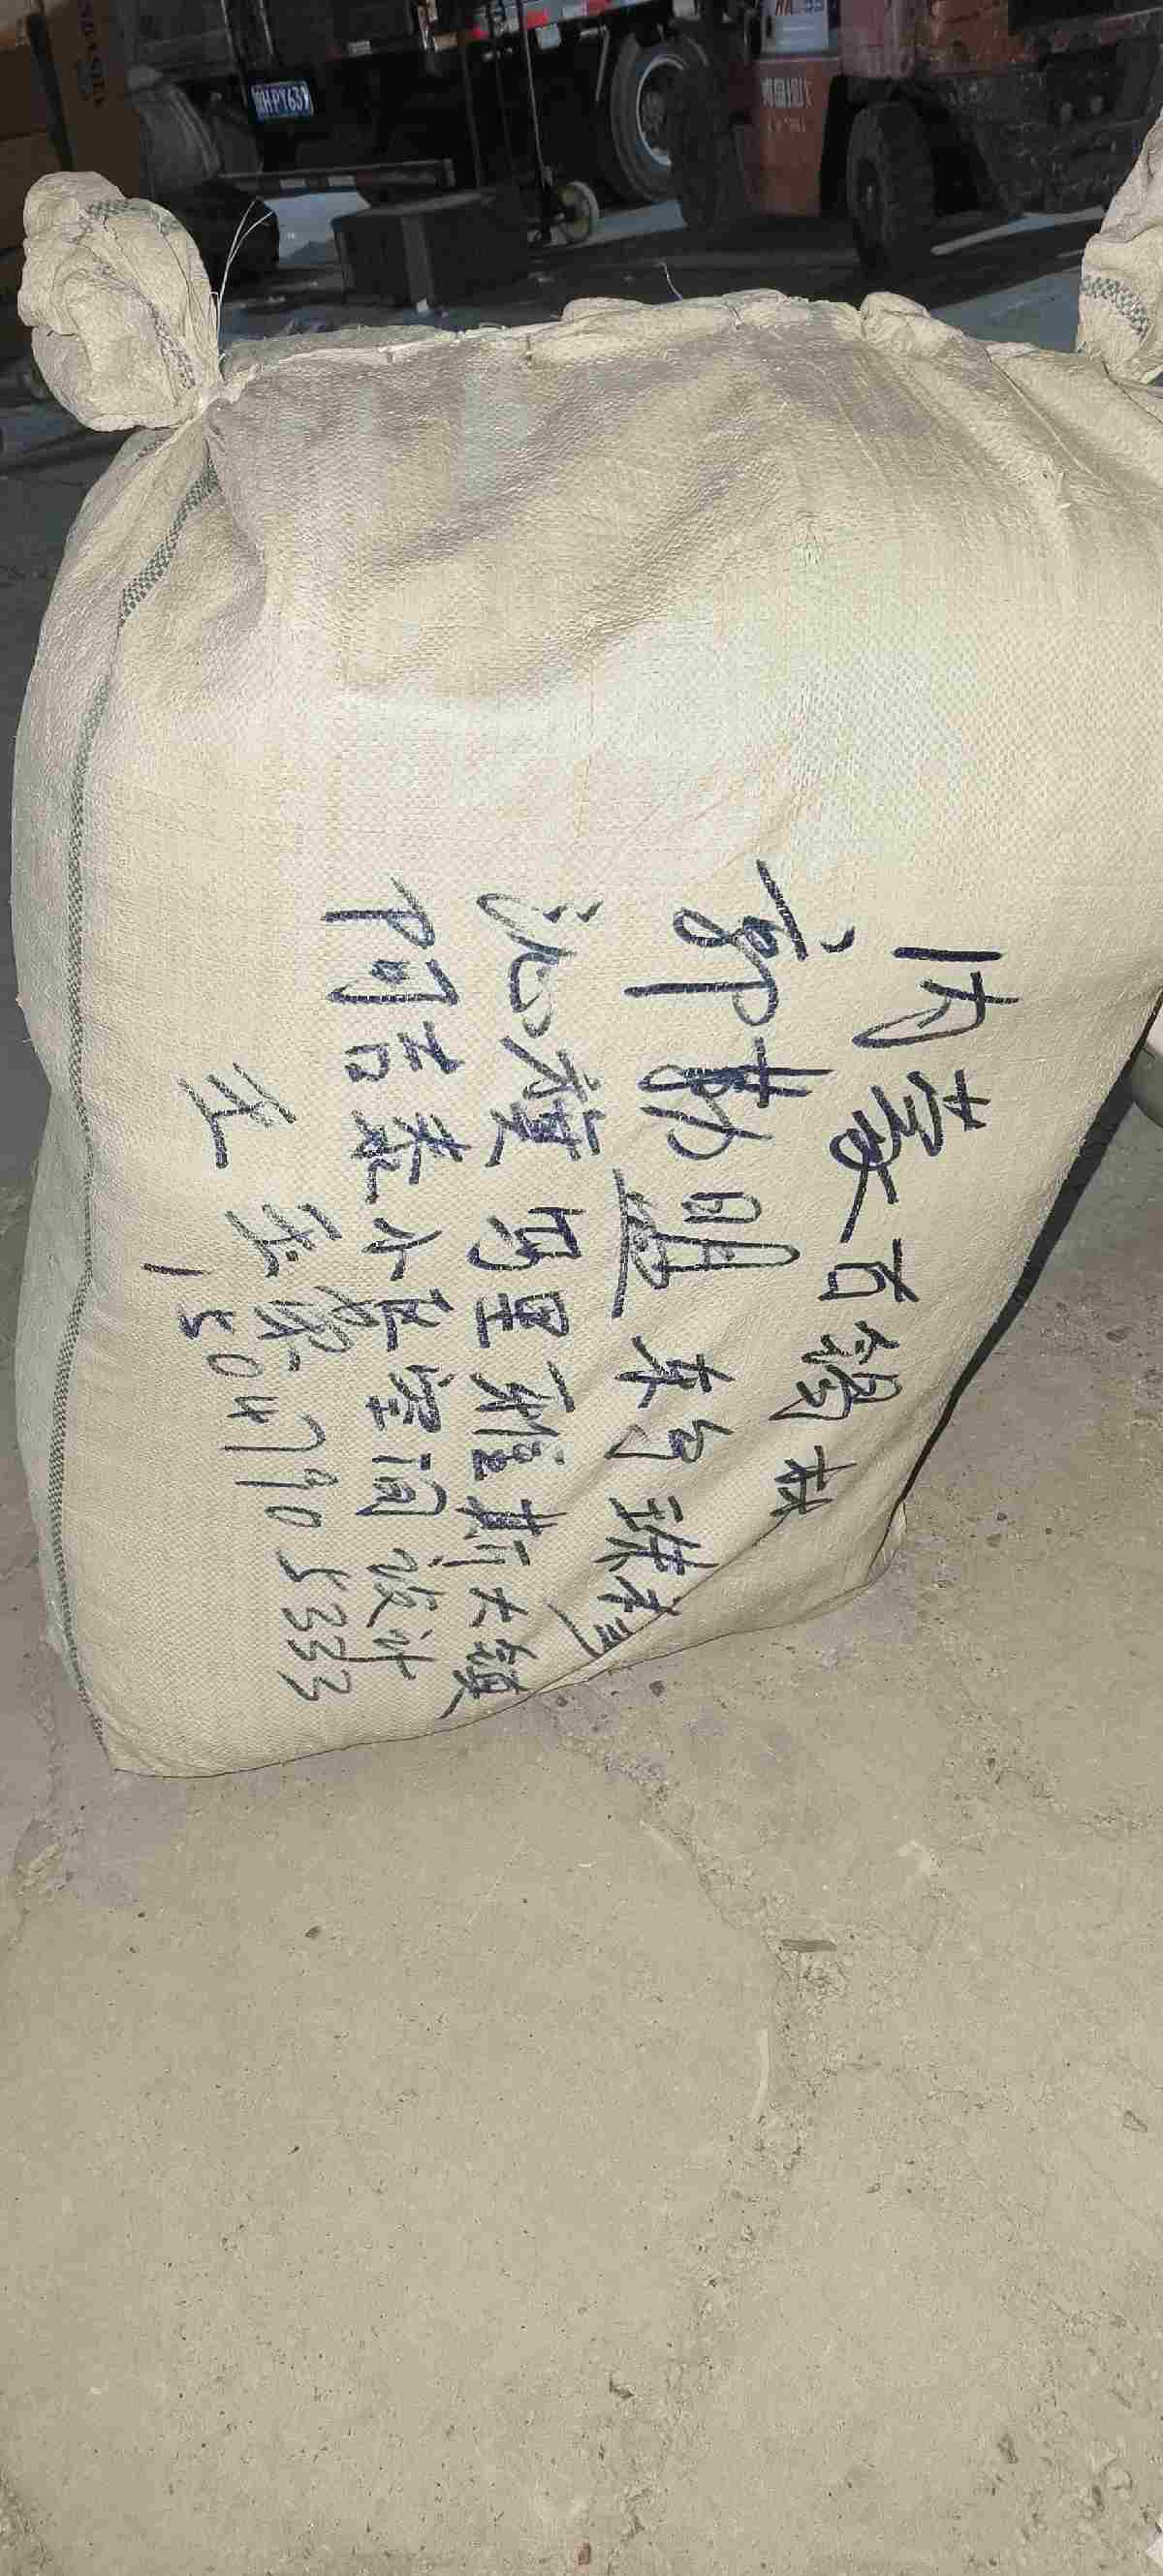 HPY639
内蒙古锡林
郭勒盟东乌珠穆
沁旗乌里雅斯太镇
阿吉泰小区空间设计
王玉
15047905333